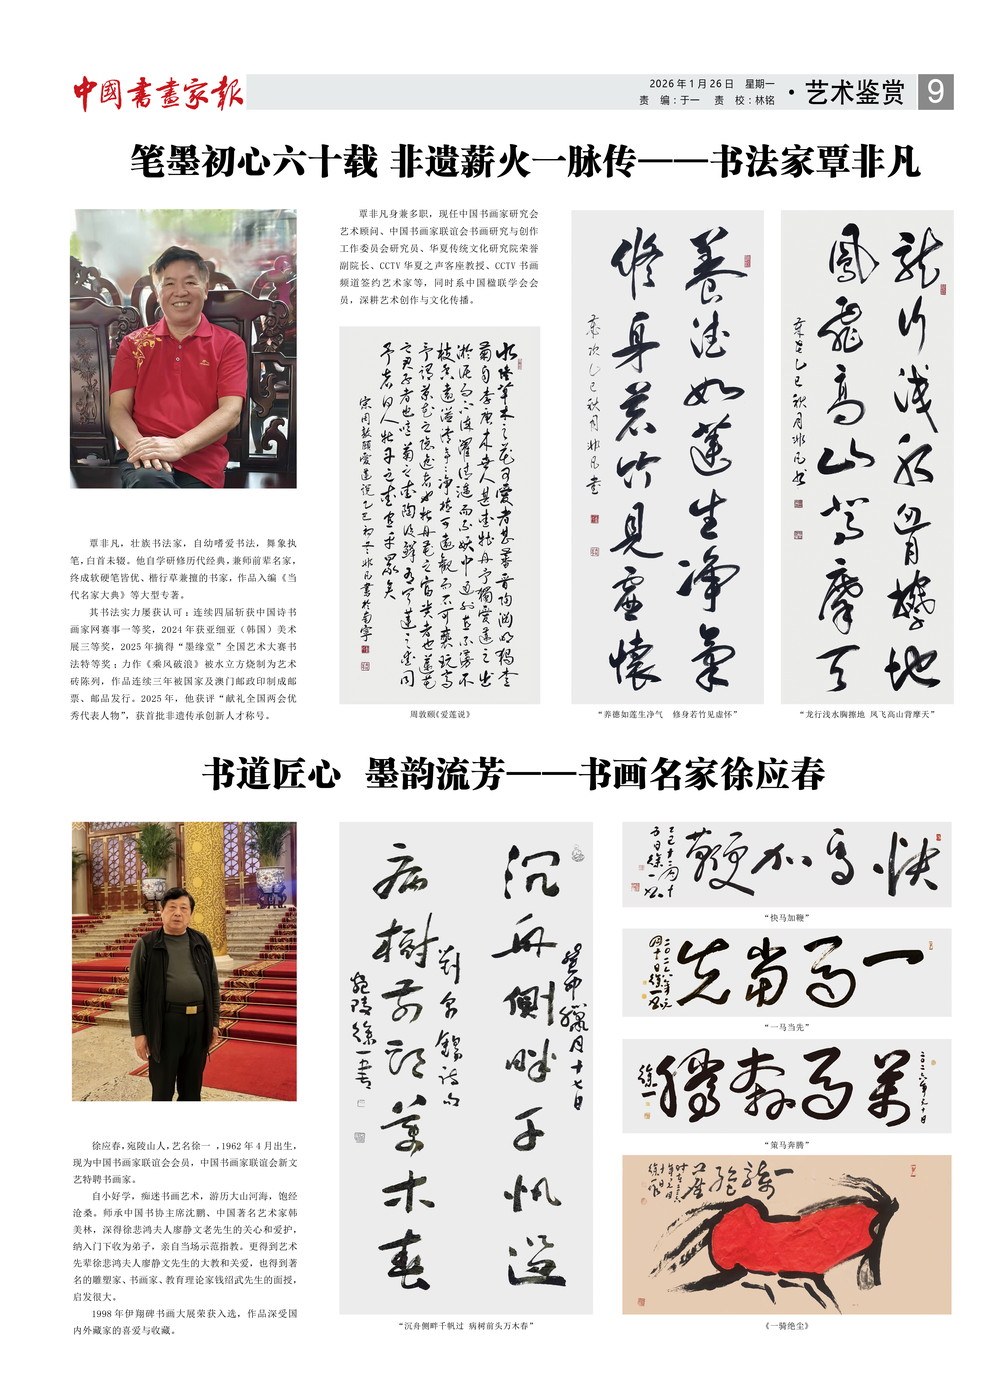 中國書畫家報
2026年1月26日　星期一
责　编：于一　责　校：林铭
·艺术鉴赏
9
笔墨初心六十载 非遗薪火一脉传——书法家覃非凡
覃非凡身兼多职，现任中国书画家研究会
艺术顾问、中国书画家联谊会书画研究与创作
工作委员会研究员、华夏传统文化研究院荣誉
副院长、CCTV华夏之声客座教授、CCTV书画
频道签约艺术家等，同时系中国楹联学会会
员，深耕艺术创作与文化传播。
覃非凡，壮族书法家，自幼嗜爱书法，舞象执
笔，白首未辍。他自学研修历代经典，兼师前辈名家，
终成软硬笔皆优、楷行草兼擅的书家，作品入编《当
代名家大典》等大型专著。
其书法实力屡获认可：连续四届斩获中国诗书
画家网赛事一等奖，2024年获亚细亚（韩国）美术
展三等奖，2025年摘得“墨缘堂”全国艺术大赛书
法特等奖；力作《乘风破浪》被水立方烧制为艺术
砖陈列，作品连续三年被国家及澳门邮政印制成邮
票、邮品发行。2025年，他获评“献礼全国两会优
秀代表人物”，获首批非遗传承创新人才称号。
周敦颐《爱莲说》
養德如蓮生净氣
修身若竹見虚懷
“养德如莲生净气　修身若竹见虚怀”
龍行浅水胸擦地
鳳飛高山背摩天
“龙行浅水胸擦地 凤飞高山背摩天”
书道匠心　墨韵流芳——书画名家徐应春
徐应春，宛陵山人，艺名徐一 ，1962年4月出生，
现为中国书画家联谊会会员，中国书画家联谊会新文
艺特聘书画家。
自小好学，痴迷书画艺术，游历大山河海，饱经
沧桑。师承中国书协主席沈鹏、中国著名艺术家韩
美林，深得徐悲鸿夫人廖静文老先生的关心和爱护，
纳入门下收为弟子，亲自当场示范指教。更得到艺术
先辈徐悲鸿夫人廖静文先生的大教和关爱，也得到著
名的雕塑家、书画家、教育理论家钱绍武先生的面授，
启发很大。
1998年伊翔碑书画大展荣获入选，作品深受国
内外藏家的喜爱与收藏。
沉舟側畔千帆過
病樹前頭萬木春
“沉舟侧畔千帆过 病树前头万木春”
快馬加鞭
“快马加鞭”
一馬當先
“一马当先”
萬馬奔騰
“策马奔腾”
一騎絶塵
《一骑绝尘》